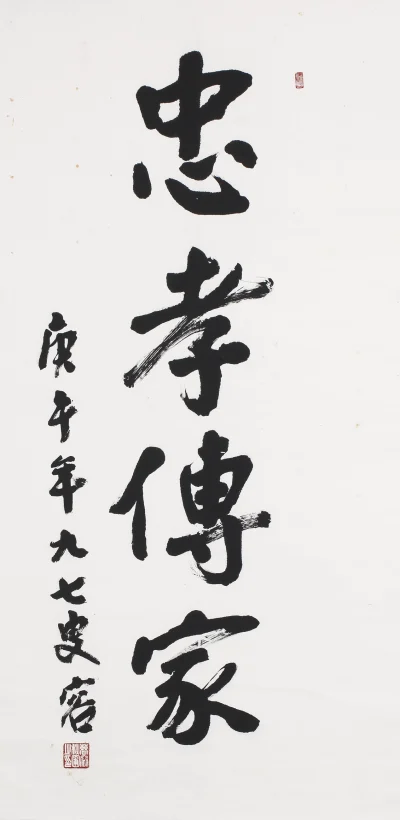 忠孝傳家
庚午年九七叟容